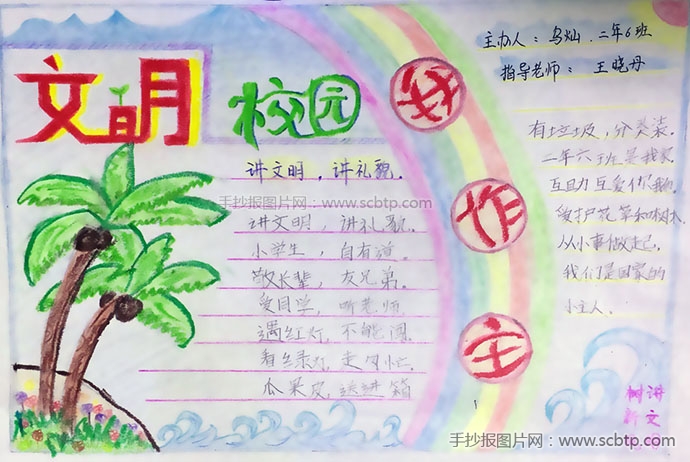 主办人：乌灿 二年6班
指导老师：王晓丹
文明
校园
我
作
主
讲文明，讲礼貌。
手抄报图片网：www.scbtp.com
讲文明，讲礼貌。
小学生，自有道。
敬长辈，友兄弟。
爱同学，听老师。
遇红灯，不能闯。
看绿灯，走勿忙。
瓜果皮，送进箱
有垃圾，分类装。
二年六班是我家，
互助互爱你我他。
爱护花草和树木
从小事做起，
我们是国家的
小主人。
讲文
树新
手抄报图片网：www.scbtp.com